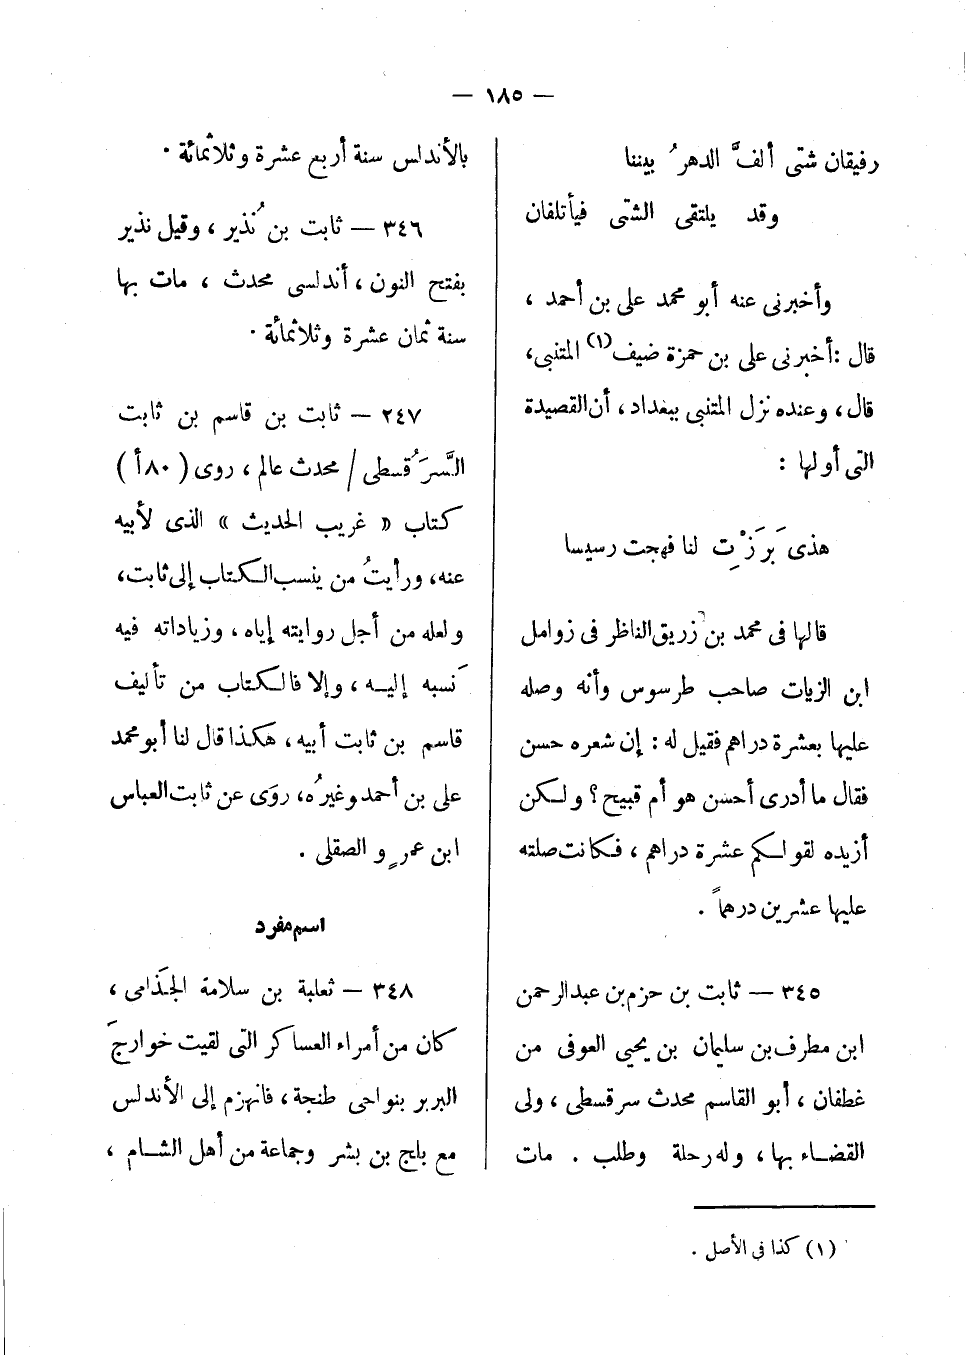 — ١٨٥ —
رفيقان شتى ألفَّ الدهرُ بيننا
وقد يلتقى الشتى فيأتلفان
وأخبرنى عنه أبو محمد على بن أحمد ،
قال : أخبرنى على بن حمزة ضيف(١) المتنبى،
قال ، وعنده نزل المتنبى ببغداد ، أن القصيدة
التى أولها :
هذى بَرَزْتِ لنا فهجت رسيسا
قالها فى محمد بن زريق الناظر فى زوامل
ابن الزيات صاحب طرسوس وأنه وصله
عليها بعشرة دراهم فقيل له : إن شعره حسن
فقال ما أدرى أحسن هو أم قبيح ؟ ولكن
أزيده لقولكم عشرة دراهم ، فكانت صلته
عليها عشرين درهماً .
٣٤٥ — ثابت بن حزم بن عبد الرحمن
ابن مطرف بن سليمان بن يحيى العوفى من
غطفان ، أبو القاسم محدث سرقسطى ، ولى
القضاء بها ، وله رحلة وطلب . مات
بالأندلس سنة أربع عشرة وثلاثمائة .
٣٤٦ — ثابت بن نُذير ، وقيل نذير
بفتح النون ، أندلسى محدث ، مات بها
سنة ثمان عشرة وثلاثمائة .
٢٤٧ — ثابت بن قاسم بن ثابت
السَّرَقُسطى / محدث عالم ، روى ( ٨٠ أ )
كتاب « غريب الحديث » الذى لأبيه
عنه ، ورأيتُ من ينسب الكتاب إلى ثابت،
ولعله من أجل روايته إياه ، وزياداته فيه
نَسبه إليه ، وإلا فالكتاب من تأليف
قاسم بن ثابت أبيه ، هكذا قال لنا أبو محمد
على بن أحمد وغيرُه، روَى عن ثابت العباس
ابن عمرٍو الصقلى .
اسم مفرد
٣٤٨ — ثعلبة بن سلامة الجَذامى ،
كان من أمراء العساكر التى لقيت خوارجَ
البربر بنواحى طنجة ، فانهزم إلى الأندلس
مع بلج بن بشر وجماعة من أهل الشام ،
(١) كذا فى الأصل .